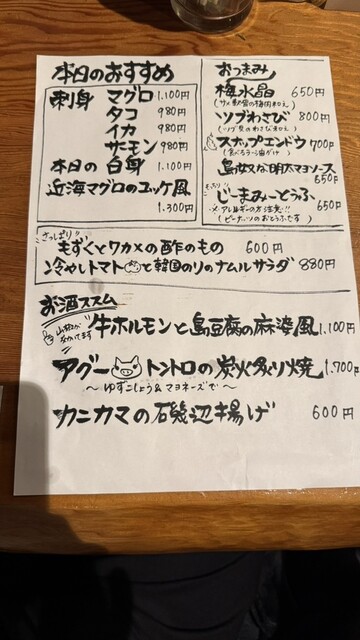 本日のおすすめ
刺身 マグロ 1.100円
タコ 980円
イカ 980円
サーモン 980円
本日の白身 1.100円
近海マグロのユッケ風
1.300円
おつまみ
梅水晶 650円
(サメ軟骨の梅肉和え)
ツブわさび 800円
(ツブ貝のわさび和え)
スナップエンドウ 700円
(食べるラー油がけ)
島らっきょ 明太マヨソース
650円
もっちり
じーまみーとうふ
※アレルギーの方注意!! 650円
(ピーナッツのおとうふです)
さっぱり!!
もずくとワカメの酢のもの 600円
冷やしトマトと韓国のりのナムルサラダ 880円
お酒ススム
山椒が
牛ホルモンと島豆腐の麻婆風 1.100円
アグートントロの炭火炙り焼 1.700円
〜ゆずこしょう&マヨネーズで〜
カニカマの磯辺揚げ 600円